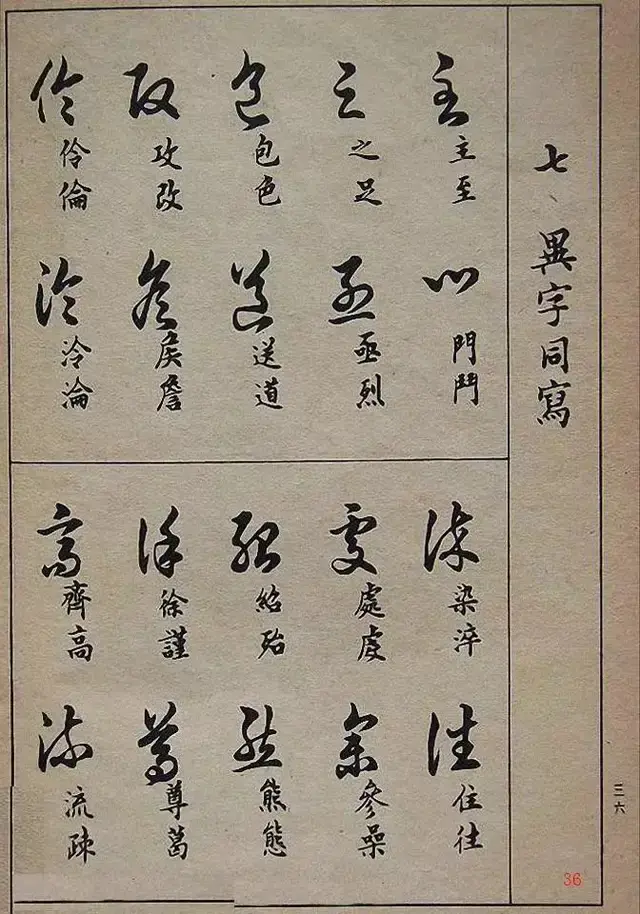 七、異字同寫
主至
之足
包色
攻改
伶倫
門鬥
亟烈
送道
矦詹
泠淪
染淬
處虔
紹殆
徐謹
齊高
住往
參喿
熊態
尊葛
流疎
三六
36